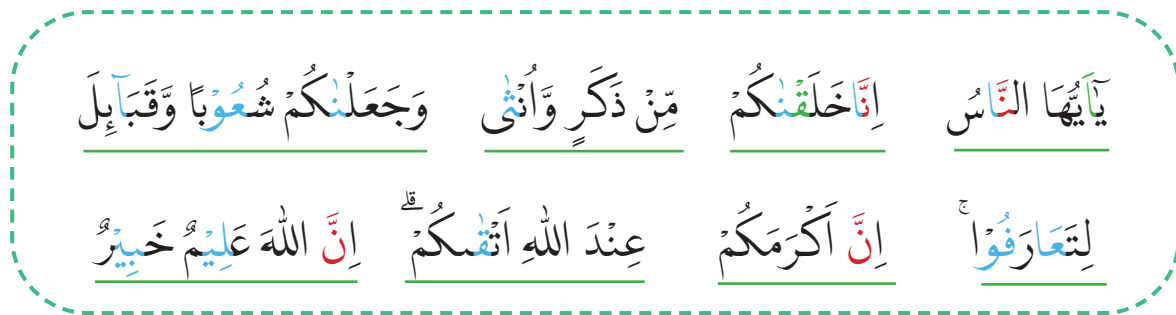 يٰٓاَيُّهَا النَّاسُ اِنَّاخَلَقْنٰكُمْ مِّنْ ذَكَرٍ وَّاُنْثٰى وَجَعَلْنٰكُمْ شُعُوْبًا وَّقَبَاۤىِٕلَ
لِتَعَارَفُوْا ۚ اِنَّ اَكْرَمَكُمْ عِنْدَ اللّٰهِ اَتْقٰىكُمْ ۗ اِنَّ اللّٰهَ عَلِيْمٌ خَبِيْرٌ